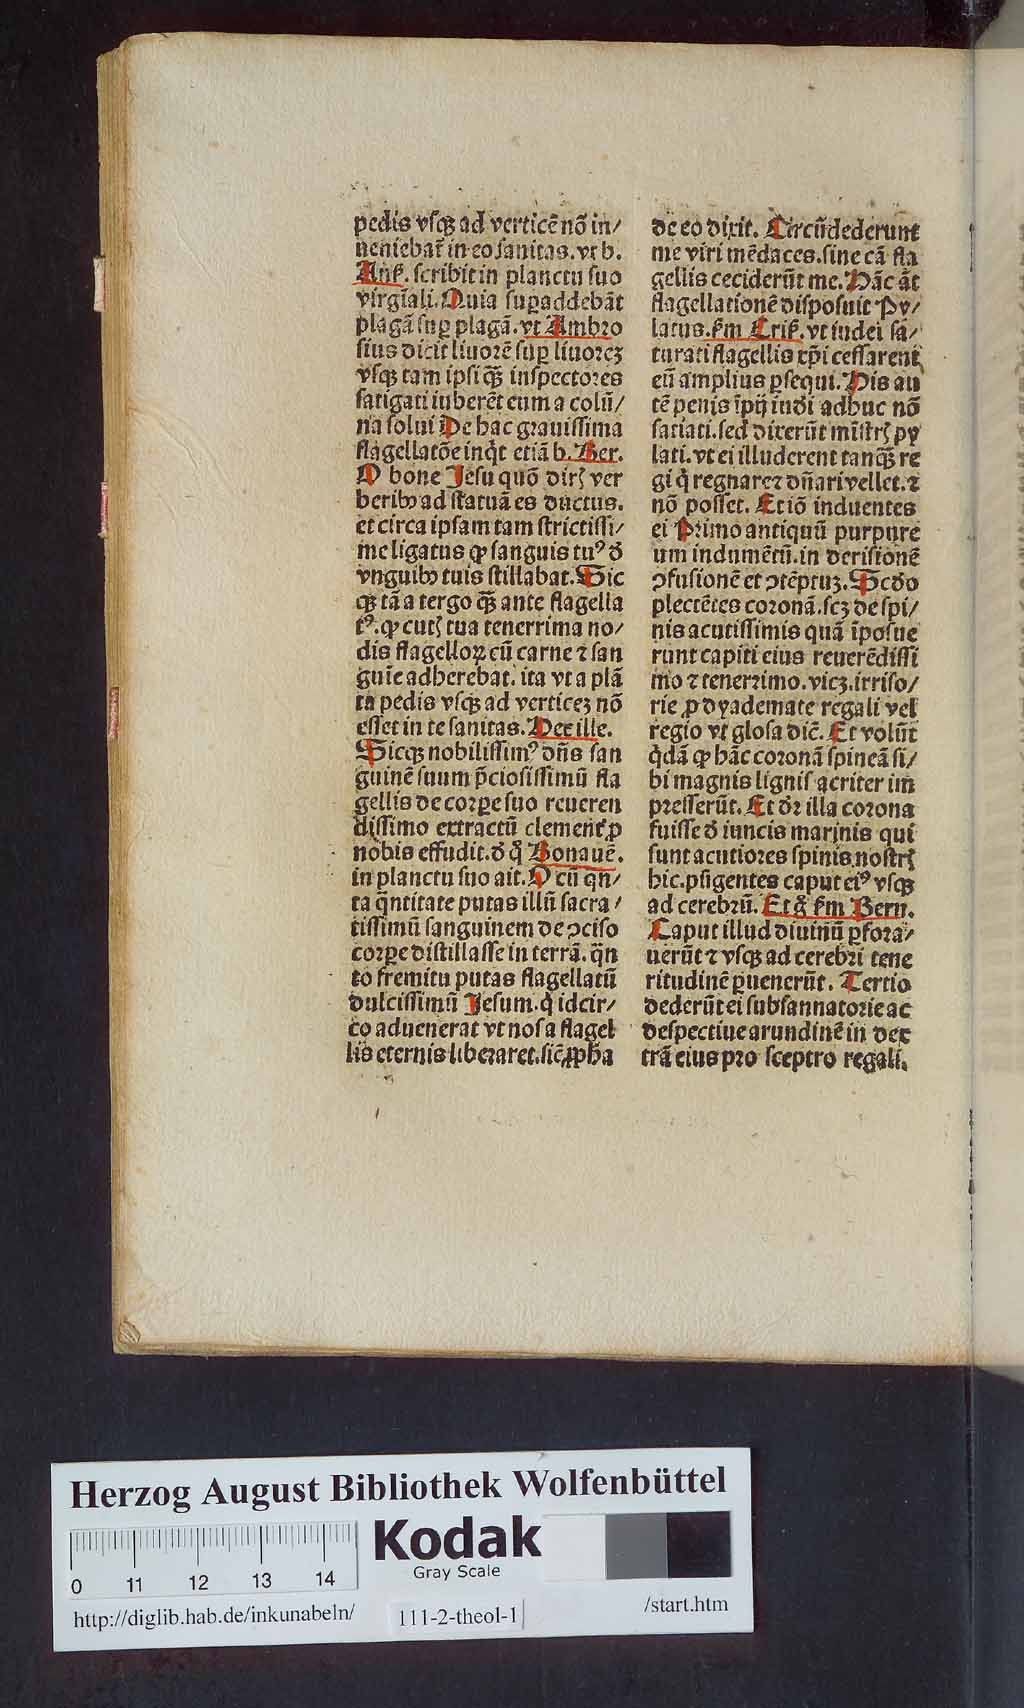 pedis vsqꝫ ad verticē nō in/
ueniebat᷑ in eo sanitas. vt b.
Anẜ. scribit in planctu suo
virgīali. Quia suꝑaddebāt
plagā suꝑ plagā. vt Ambro
sius dicit liuorē suꝑ liuorez
vsqꝫ tam ipsi qꝫ̄ inspectores
fatigati iuberēt eum a colū/
na solui De hac grauissima
flagellatōe inq̇t etiā b. Ber.
O bone Jesu quō dirꝭ ver
beribꝰ ad statuā es ductus.
et circa ipsam tam strictissi/
me ligatus ꝙ sanguis tuꝰ ð
vnguibꝰ tuis stillabat. Sic
qꝫ tā a tergo qꝫ̄ ante flagella
tꝰ. ꝙ cutꝭ tua tenerrima no/
dis flagelloꝝ cū carne ⁊ san
guīe adherebat. ita vt a plā
ta pedis vsqꝫ ad verticeꝫ nō
esset in te sanitas. Hec ille.
Sicqꝫ nobilissimꝰ dn̄s san
guinē suum p̄ciosissimū fla
gellis de corꝑe suo reueren
dissimo extractū clement᷑ ꝓ
nobis effudit. ð q̊ Bonauē.
in planctu suo ait. O cū qn̄/
ta qn̄titate putas illū sacra/
tissimū sanguinem de ↄciso
corꝑe distillasse in terrā. qn̄
to fremitu putas flagellatū
dulcissimū Jesum. q̇ idcir/
co aduenerat vt nos a flagel
lis eternis liberaret. sic̄ ꝓph̄a
de eo dixit. Circūdederunt
me viri mēdaces. sine cā fla
gellis ceciderūt me. Hāc āt
flagellationē disposuit Py/
latus. ẜm Criẜ. vt iudei sa/
turati flagellis xp̄i cessarent
eū amplius ꝑsequi. His au
tē penis īpij iudi adhuc nō
satiati. sed dixerūt mīstrꝭ py
lati. vt ei illuderent tanqꝫ̄ re
gi q̇ regnare⁊ dn̄ari vellet. ⁊
nō posset. Et iō induentes
ei Primo antiquū purpure
um indumētū. in derisionē
ↄfusionē et ↄtēptuꝫ. Scðo
plectētes coronā. scꝫ de spi/
nis acutissimis quā īposue
runt capiti eius reuerēdissi
mo ⁊ tenerrimo. vicꝫ. irriso/
rie ꝓ dyademate regali vel
regio vt glosa dic̄. Et volūt
q̇dā ꝙ hāc coronā spineā si/
bi magnis lignis acriter im
presserūt. Et ðr illa corona
fuisse ð iuncis marinis qui
sunt acutiores spinis nostrꝭ
hic. pfigentes caput eiꝰ vsqꝫ
ad cerebrū. Et q̊ ẜm Bern.
Caput illud diuinū ꝑfora/
uerūt ⁊ vsqꝫ ad cerebri tene
ritudinē ꝑuenerūt. Tertio
dederūt ei subsannatorie ac
despectiue arundinē in dex
trā eius pro sceptro regali.
Herzog August Bibliothek Wolfenbüttel
Kodak
Gray Scale
0 11 12 13 14
http://diglib.hab.de/inkunabeln/ 111-2-theol-1 /start.htm